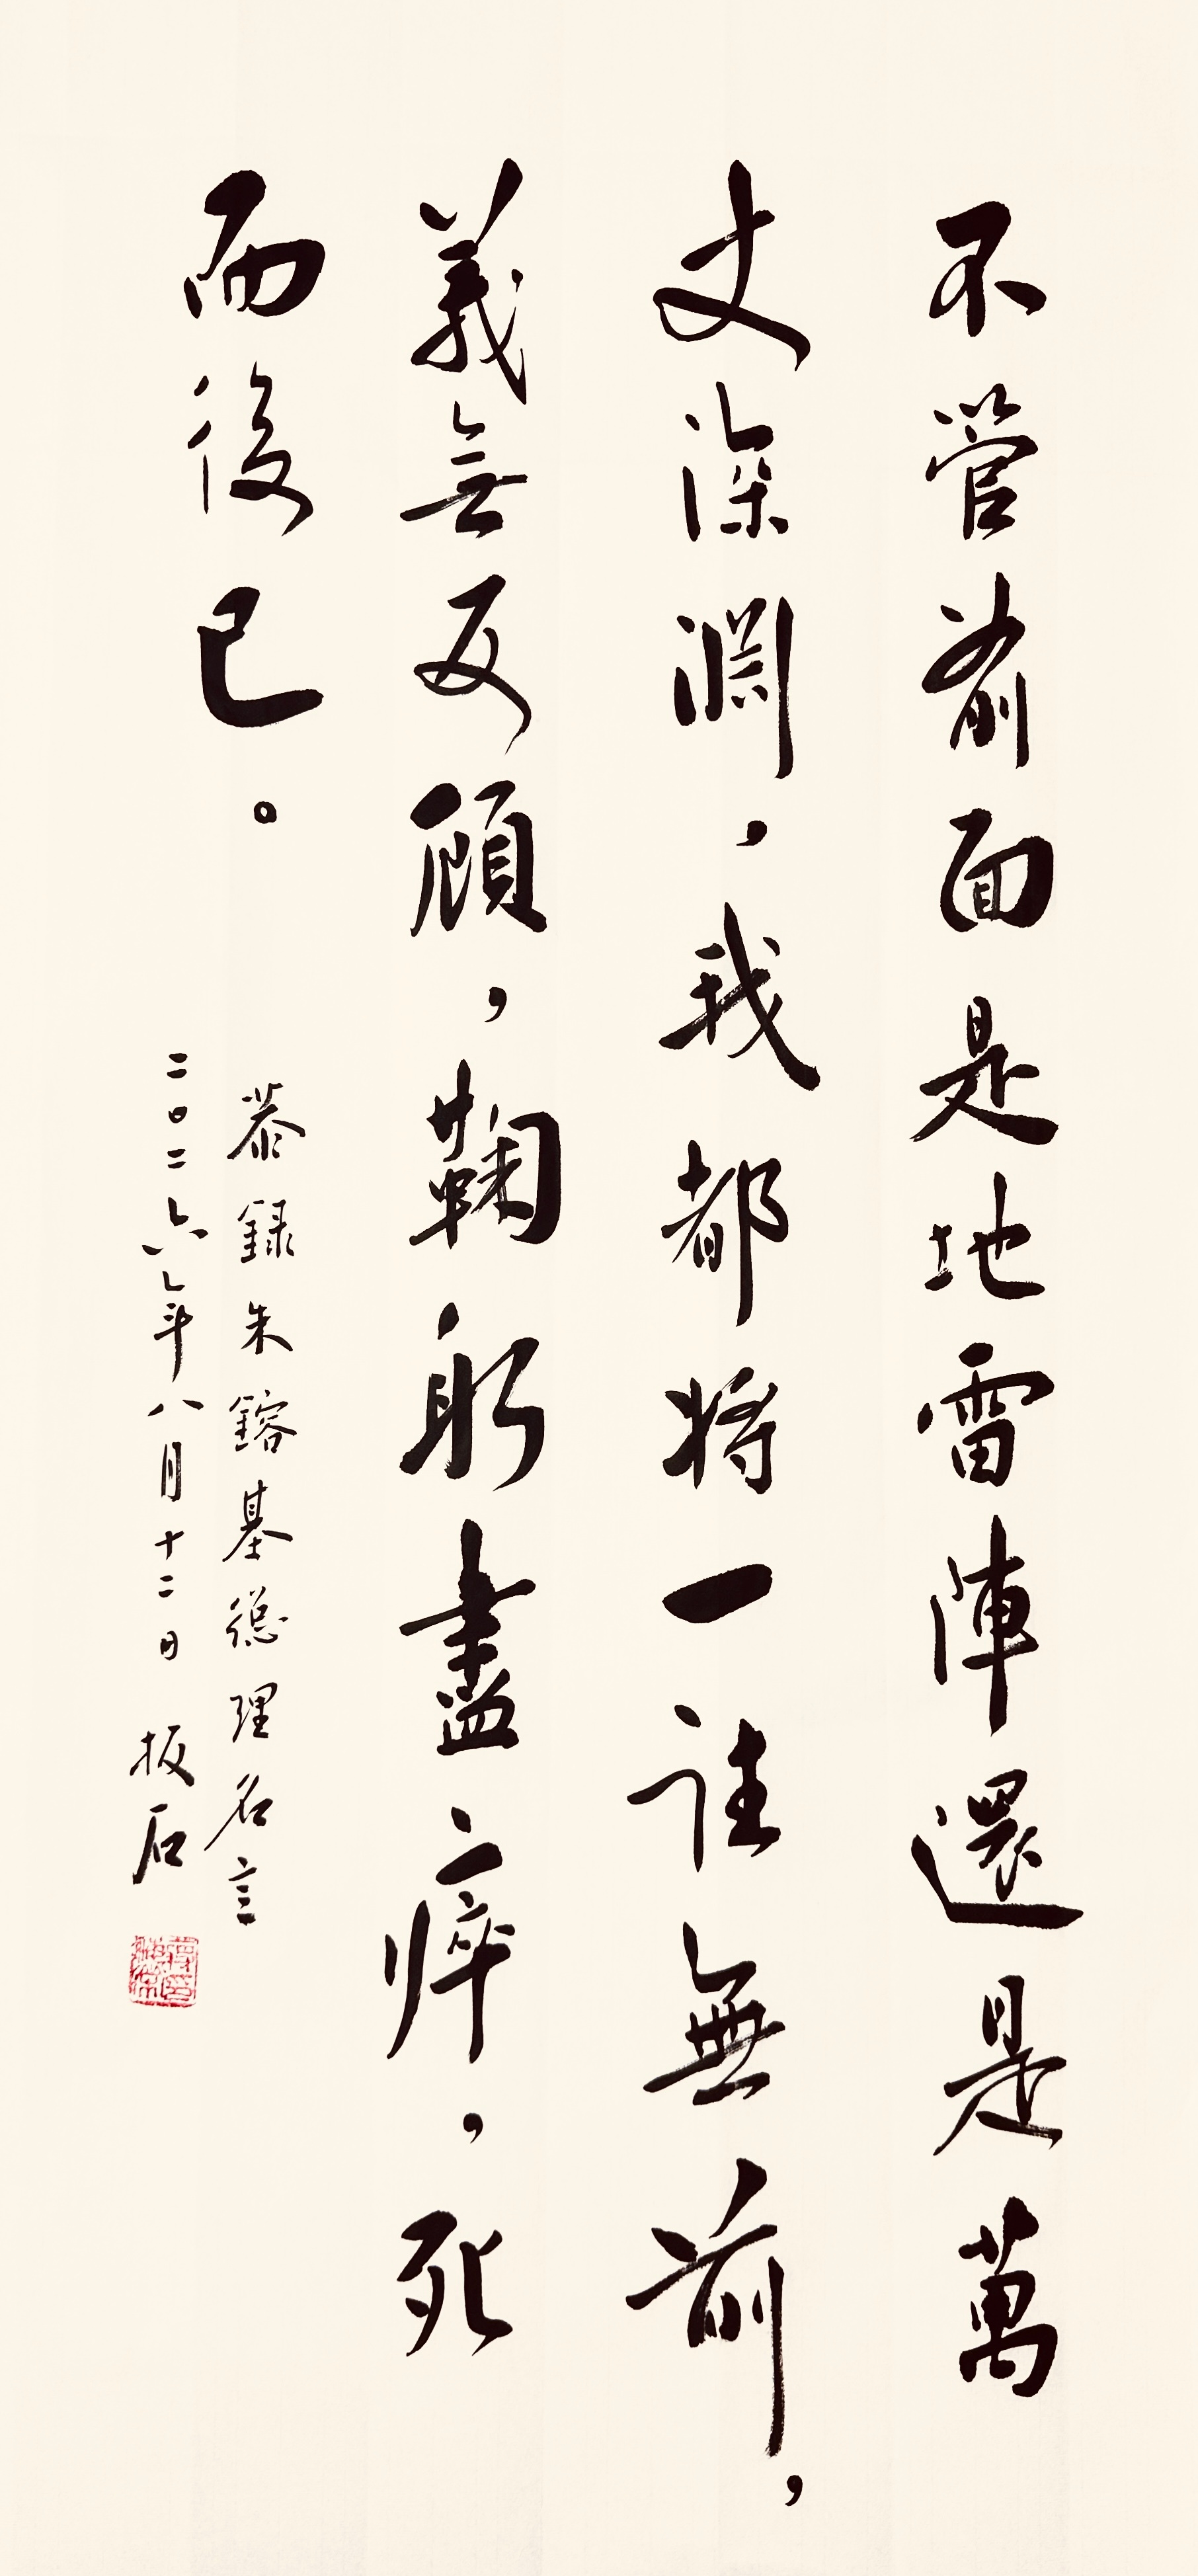 不管前面是地雷陣還是萬
丈深淵，我都將一往無前，
義無反顧，鞠躬盡瘁，死
而後已。
恭録朱鎔基總理名言
二〇二六年八月十二日 板石